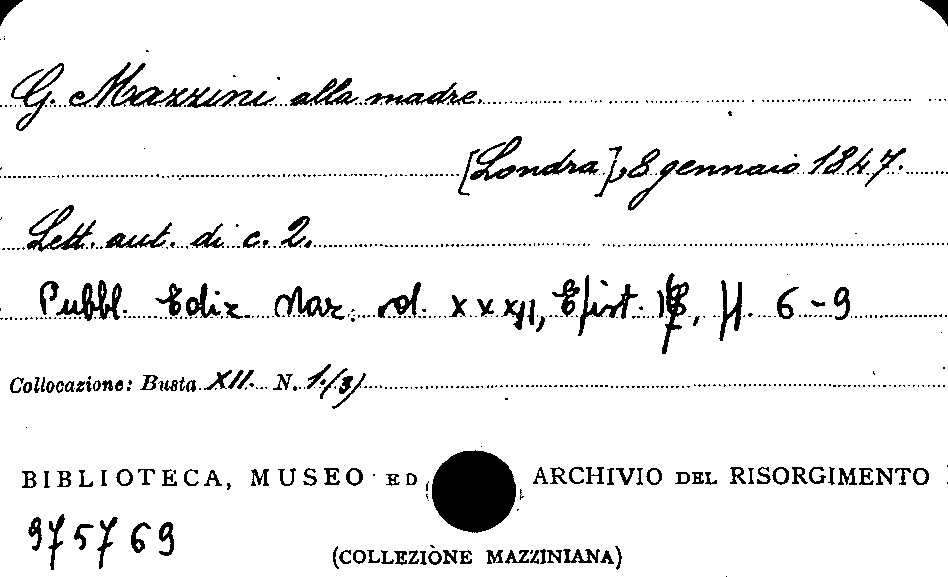 G. Mazzini alla madre.
[Londra], 8 gennaio 1847.
Lett. aut. di c. 2.
Pubbl. Ediz. Naz. vol. XXXII, Epist. pp. 6-9
Collocazione: Busta XII. N. 1.(3)
BIBLIOTECA, MUSEO ED ARCHIVIO DEL RISORGIMENTO
975769
(COLLEZIONE MAZZINIANA)